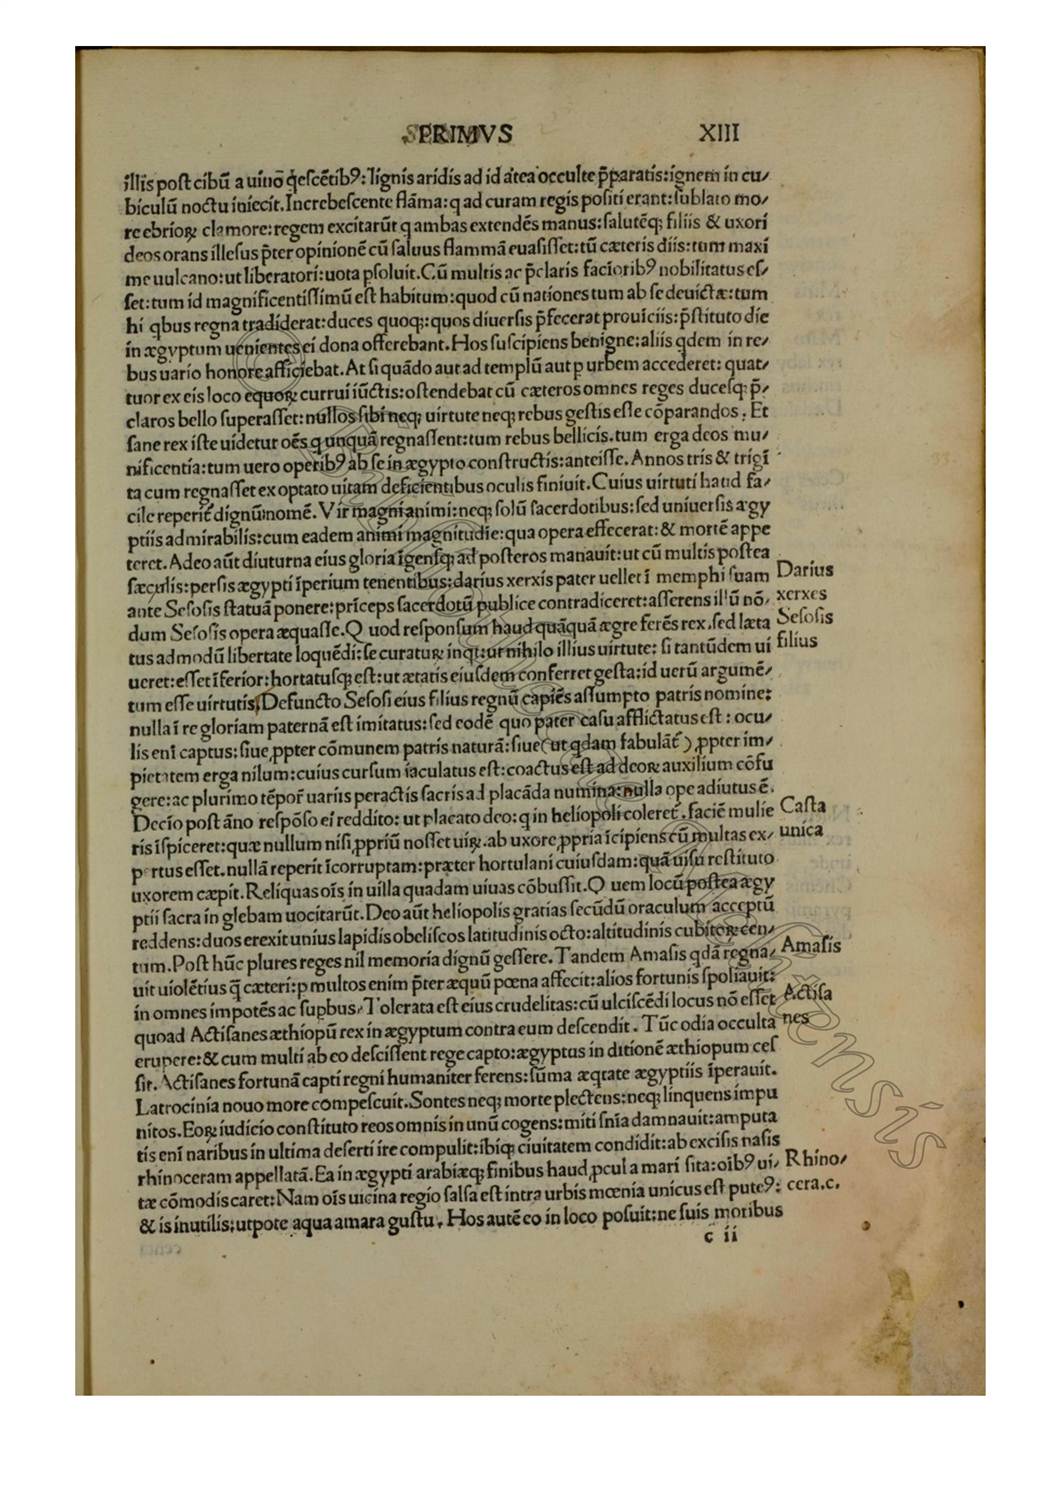 PRIMVS XIII
illis post cibū a uino q̄escētibꝰ: lignis aridis ad id átea occulte p̄paratis: ignem in cu⸗
biculū noctu iniecit. Increbescente flāma: q ad curam regis positi erant: sublato mo⸗
re ebrioꝝ clamore: regem excitarūt q ambas extendēs manus: salutēqꝫ filiis & uxori
deos orans illesus p̄ter opinionē cū saluus flammā euasisset: tū cæteris diis: tum maxi
me uulcano: ut liberatori: uota ꝑsoluit. Cū multis ac p̄claris faciorībꝰ nobilitatus es⸗
set: tum id magnificentissimū est habitum: quod cū nationes tum ab se deuictæ: tum
hi qbus regna tradiderat: duces quoqꝫ: quos diuersis p̄fecerat prouiciis: p̄stituto die
in ægyptum uenientes ei dona offerebant. Hos suscipiens benigne: aliis qdem in re⸗
bus uario honore afficiebat. At si quādo aut ad templū aut ꝑ urbem accederet: quat⸗
tuor ex eis loco equoꝝ currui iūctis: ostendebat cū cæteros omnes reges ducesqꝫ p̄⸗
claros bello superasset: nullos sibi neqꝫ uirtute neqꝫ rebus gestis esse cōparandos. Et
sane rex iste uidetur oēs q unquā regnassent: tum rebus bellicis. tum erga deos mu⸗
nificentia: tum uero operibꝰ ab se in ægypto constructis: anteisse. Annos tris & trigī
ta cum regnasset ex optato uitam deficientibus oculis finiuit. Cuius uirtuti haud fa⸗
cile reperit᷑ dignū nomē. Vir magnianimi: neqꝫ solū sacerdotibus: sed uniuersis ægy
ptiis admirabilis: cum eadem animi magnitudīe: qua opera effecerat: & mortē appe
teret. Adeo aūt diuturna eius gloria īgensqꝫ ad posteros manauit: ut cū multis postea
sæculis: persis ægypti īperium tenentibus: darius xerxis pater uellet ī memphi suam
ante Sesosis statuā ponere: prīceps sacerdotū publice contradiceret: asserens illū nō⸗
dum Sesosis opera æquasse. Quod responsum haud quāquā ægre ferēs rex. sed læta
tus admodū libertate loquēdi: se curatuꝝ inqt: ut nihilo illius uirtute: si tantūdem ui
ueret: esset īferior: hortatusqꝫ est: ut ætatis eiusdem conferret gesta: id uerū argumē⸗
tum esse uirtutis. Defuncto Sesosi eius filius regnū capiēs assumpto patris nomine:
nulla ī re gloriam paternā est imitatus: sed eodē quo pater casu afflictatus est: ocu⸗
lis enī captus: siue ꝓpter cōmunem patris naturā: siue (ut qdam fabulāt᷑) ꝓpter im⸗
pietatem erga nilum: cuius cursum iaculatus est: coactus est ad deoꝝ auxilium cōfu
gere: ac plurimo tēpor̄ uariis peractis sacris ad placāda numina: nulla ope adiutus ē.
Decīo post āno respōso ei reddito: ut placato deo: q in heliopoli coleret᷑. faciē mulie
ris īspiceret: quæ nullum nisi ꝓpriū nosset uiꝝ. ab uxore ꝓpria īcipiens cū multas ex⸗
pertus esset. nullā reperit īcorruptam: præter hortulani cuiusdam: quā uisu restituto
uxorem cæpit. Reliquas oīs in uilla quadam uiuas cōbussit. Quem locū postea ægy
ptii sacra in glebam uocitarūt. Deo aūt heliopolis gratias secūdū oraculum acceptū
reddens: duos erexit unius lapidis obeliscos latitudinis octo: altitudinis cubitoꝝ cen⸗
tum. Post hūc plures reges nil memoria dignū gessere. Tandem Amasis qdā regna⸗
uit uiolētius q̄ cæteri: ꝑ multos enim p̄ter æquū pœna affecit: alios fortunis spoliauit:
in omnes impotēs ac suꝑbus. Tolerata est eius crudelitas: cū ulciscēdi locus nō esset
quoad Actisanes æthiopū rex in ægyptum contra eum descendit. Tūc odia occulta
erupere: & cum multi ab eo descissent rege capto: ægyptus in ditionē æthiopum ces
sit. Actisanes fortunā capti regni humaniter ferens: sūma æqtate ægyptiis īperauit.
Latrocinia nouo more compescuit. Sontes neqꝫ morte plectens: neqꝫ linquens impu
nitos. Eoꝝ iudicio constituto reos omnis in unū cogens: miti snīa damnauit: amputa
tis enī naribus in ultima deserti ire compulit: ibiqꝫ ciuitatem condidit: ab excisis nasis
rhinoceram appellatā. Ea in ægypti arabiæqꝫ finibus haud ꝓcul a mari sita: oībꝰ ui⸗
tæ cōmodis caret: Nam oīs uicina regio salsa est intra urbis mœnia unicus est puteꝰ:
& is inutilis: utpote aqua amara gustu. Hos autē eo in loco posuit: ne suis moribus
c ii
Darius
xerxes
Sesosis
filius
Casta
unica
Amasis
Actisa
nes
Rhino⸗
cera.c.